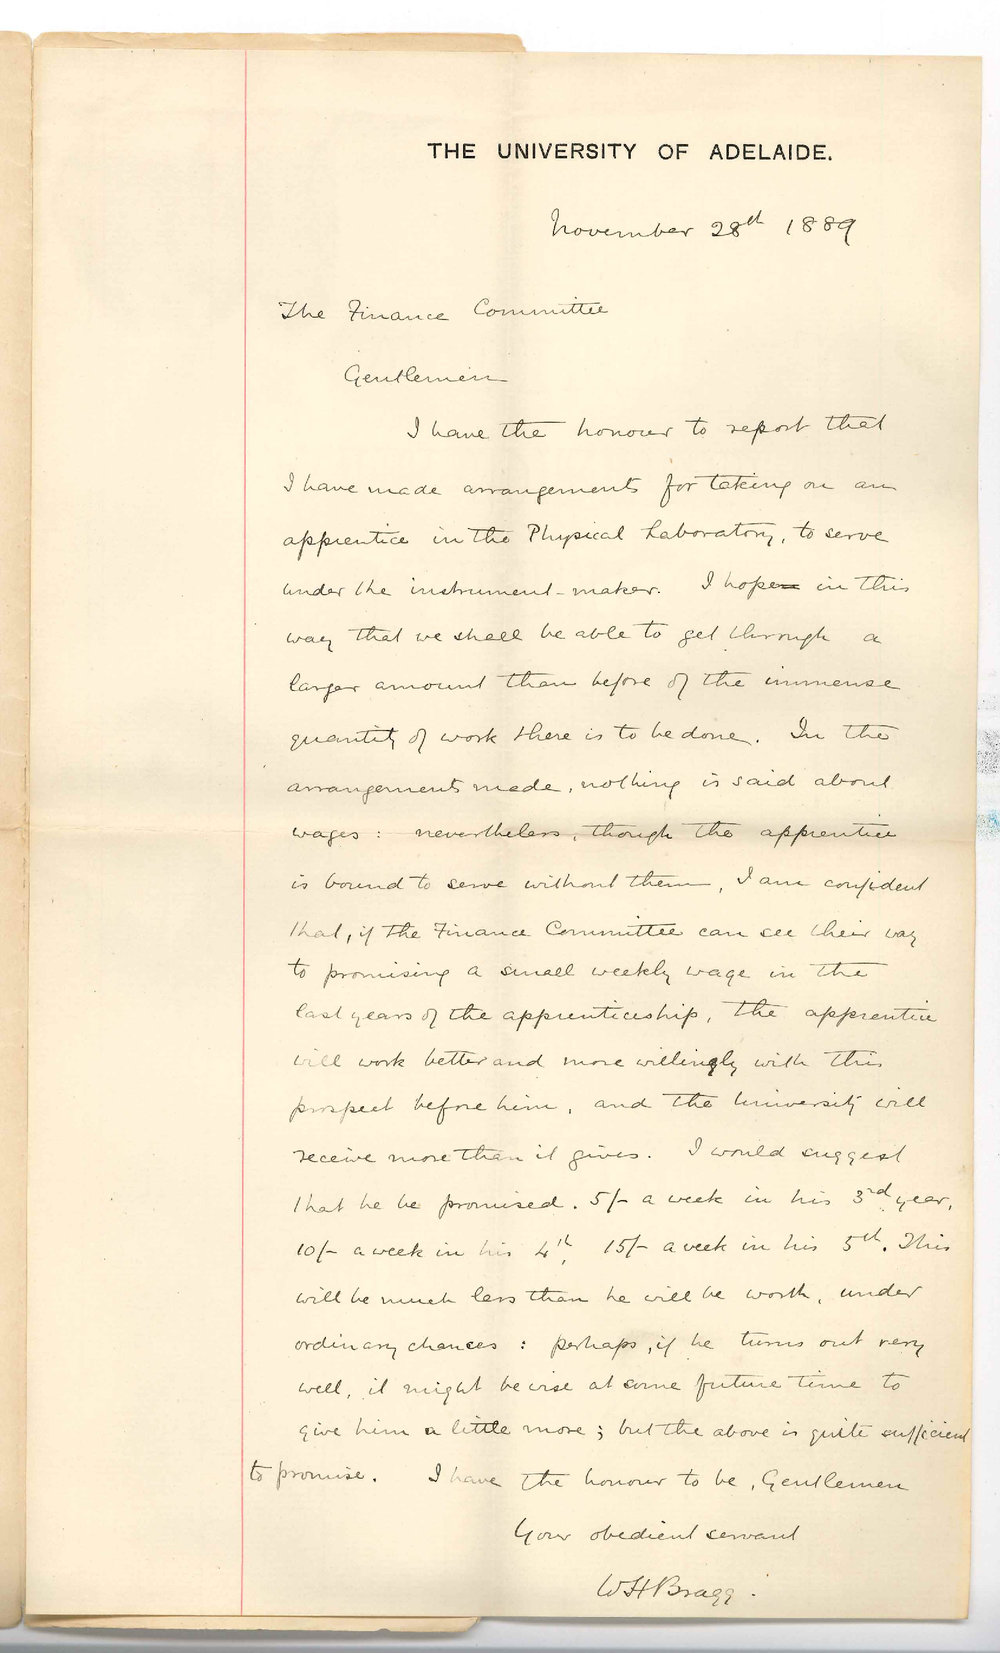 THE UNIVERSITY OF ADELAIDE.
November 28th 1889
The Finance Committee
Gentlemen
I have the honour to report that
I have made arrangements for taking on an
apprentice in the Physical Laboratory, to serve
under the instrument-maker. I hope in this
way that we shall be able to get through a
larger amount than before of the immense
quantity of work there is to be done. In the
arrangements made, nothing is said about
wages: nevertheless, though the apprentice
is bound to serve without them, I am confident
that, if the Finance Committee can see their way
to promising a small weekly wage in the
last years of the apprenticeship, the apprentice
will work better and more willingly with this
prospect before him, and the University will
receive more than it gives. I would suggest
that he be promised. 5/- a week in his 3rd year,
10/- a week in his 4th, 15/- a week in his 5th. This
will be much less than he will be worth, under
ordinary chances: perhaps, if he turns out very
well, it might be wise at some future time to
give him a little more; but the above is quite sufficient
to promise. I have the honour to be, Gentlemen
Your obedient servant
WHBragg.